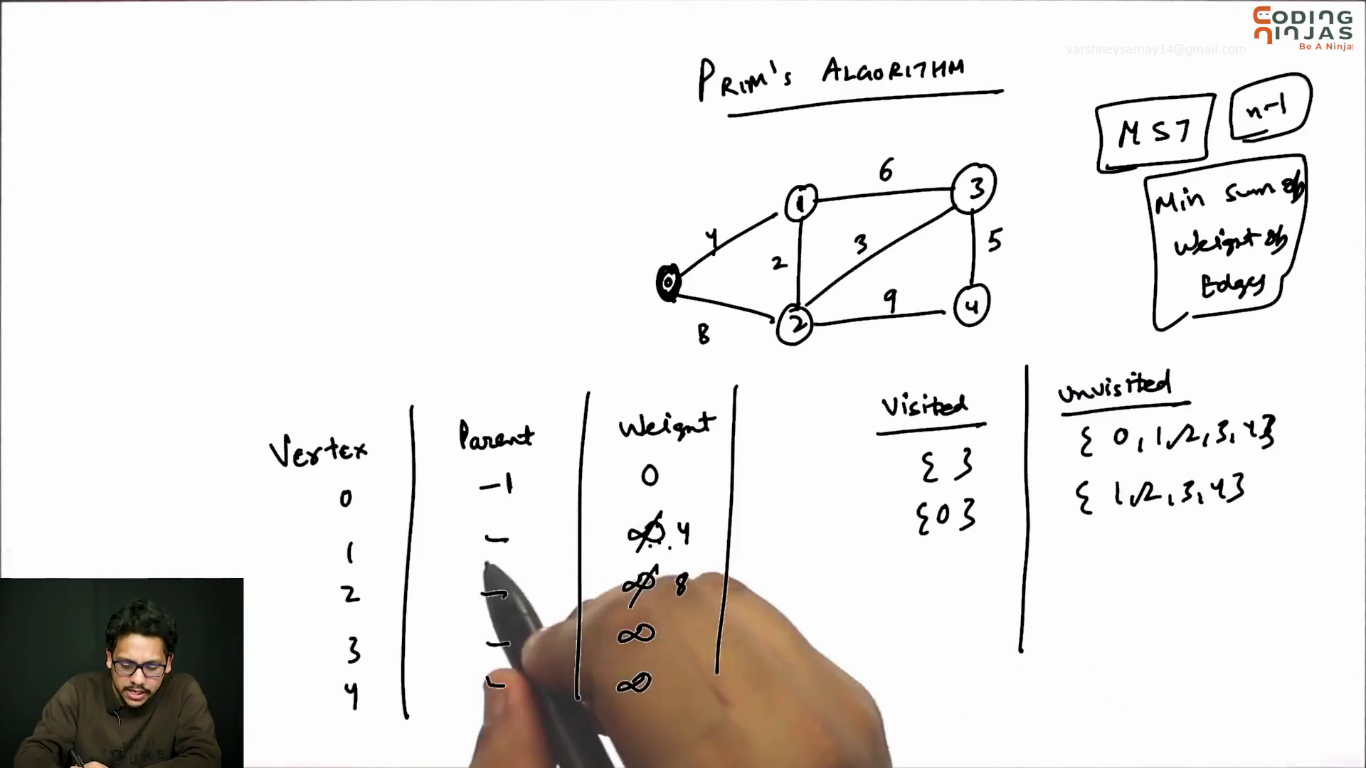 CODING
NINJAS
Be A Ninja
varshneysamay14@gmail.com
PRIM'S ALGORITHM
MST
n-1
Min sum of
weight of
Edges
0
1
2
3
4
4
8
2
6
3
5
9
Vertex Parent Weight
0 -1 0
1 - ∞ 4
2 - ∞ 8
3 - ∞
4 - ∞
Visited unvisited
{ } { 0, 1, 2, 3, 4}
{0} { 1, 2, 3, 4}